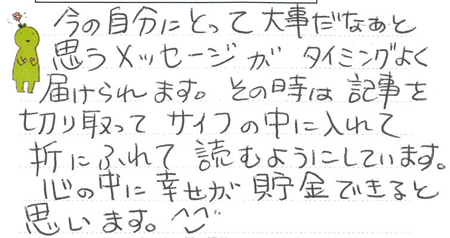 今の自分にとって大事だなあと
思うメッセージが タイミングよく
届けられます。その時は 記事を
切り取って サイフの中に入れて
折にふれて 読むようにしています。
心の中に 幸せが 貯金できると
思います。